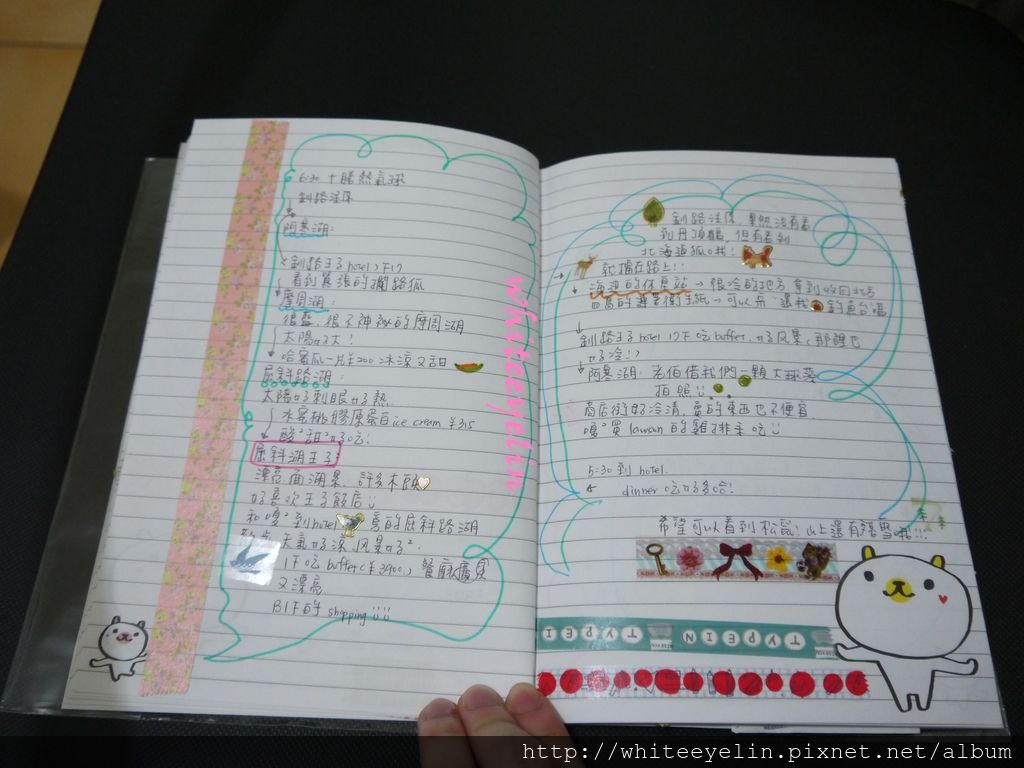 6:30 十勝熱氣球
釧路溼原
阿寒湖:
釧路王子hotel 17F
看到囂張的攔路狐
摩周湖:
很藍、很不神祕的摩周湖
太陽好大!
哈蜜瓜一片¥200 冰涼又甜
屈斜路湖:
太陽好刺眼好熱
水蜜桃膠原蛋白ice cream ¥315
酸酸甜甜好吃!
屈斜湖王子
漂亮面湖景, 許多木頭
好喜歡王子飯店
和嘎嘎到hotel 旁的屈斜路湖
天氣好涼、風景好好.
1F 吃buffet(¥3900), 餐廳廣
又漂亮
B1F的 shipping !!!
whiteeyelin
釧路溼原, 果然沒有看
到丹頂鶴, 但有看到
北海道狐哦!
就擋在路上!!
海邊的休息站 → 很冷的地方 拿到收回北方
四島的選舉衛生紙 → 可以 還我釣魚台嗎
釧路王子hotel 17F 吃buffet, 好風景, 那裡也
好冷!?
阿寒湖: 老伯借我們一顆大球藻
拍照!!
商店街好冷清, 賣的東西也不便宜
嘎嘎買lawson 的雞排來吃
5:30 到 hotel.
dinner 吃好多哈!
希望可以看到松鼠! 山上還有殘雪哦!!!
TYPEIN TYPEI
http://whiteeyelin.pixnet.net/album